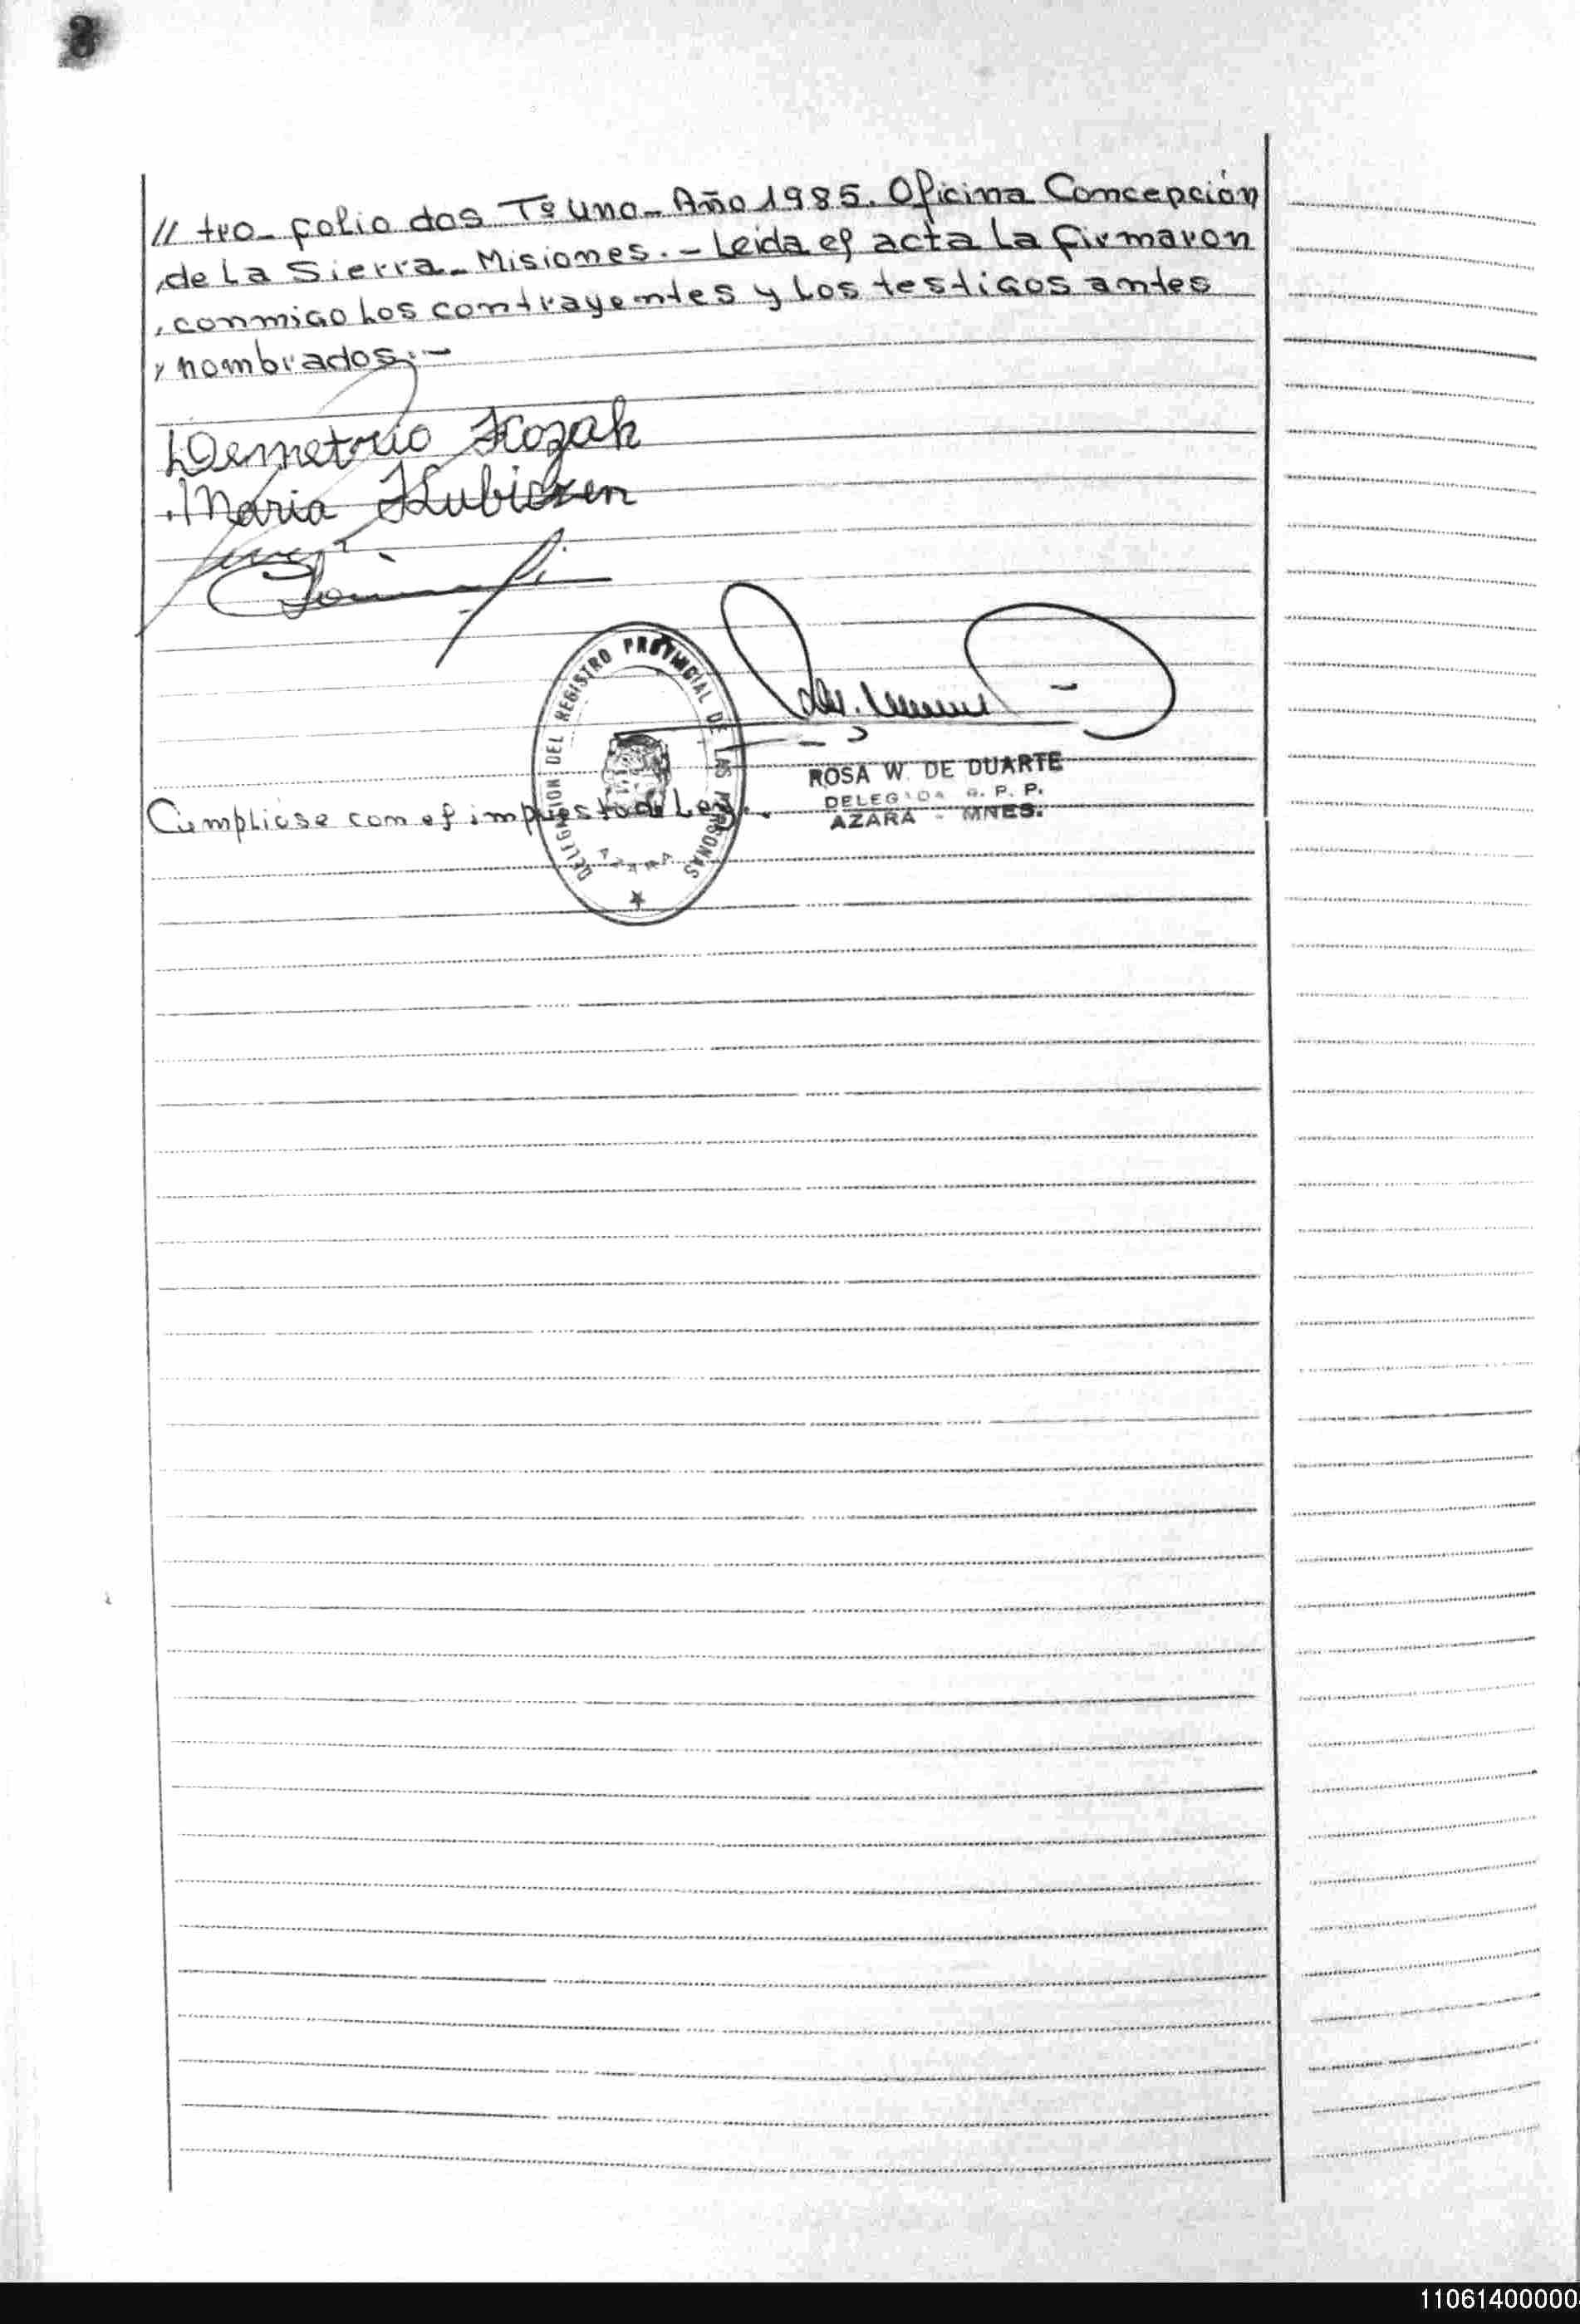 8
// tro_ folio dos Tº Uno_ Año 1985. Oficina Concepción
de La Sierra_ Misiones. - Leida el acta La firmaron
conmigo Los contrayentes y Los testigos antes
nombrados. -
Demetrio Kozak
Maria Kubiszen
DELEGACION DEL REGISTRO PROVINCIAL DE LAS PERSONAS
AZARA
ROSA W. DE DUARTE
DELEGADA R. P. P.
AZARA - MNES.
Cumpliose con el impuesto de Ley. -
11061400000